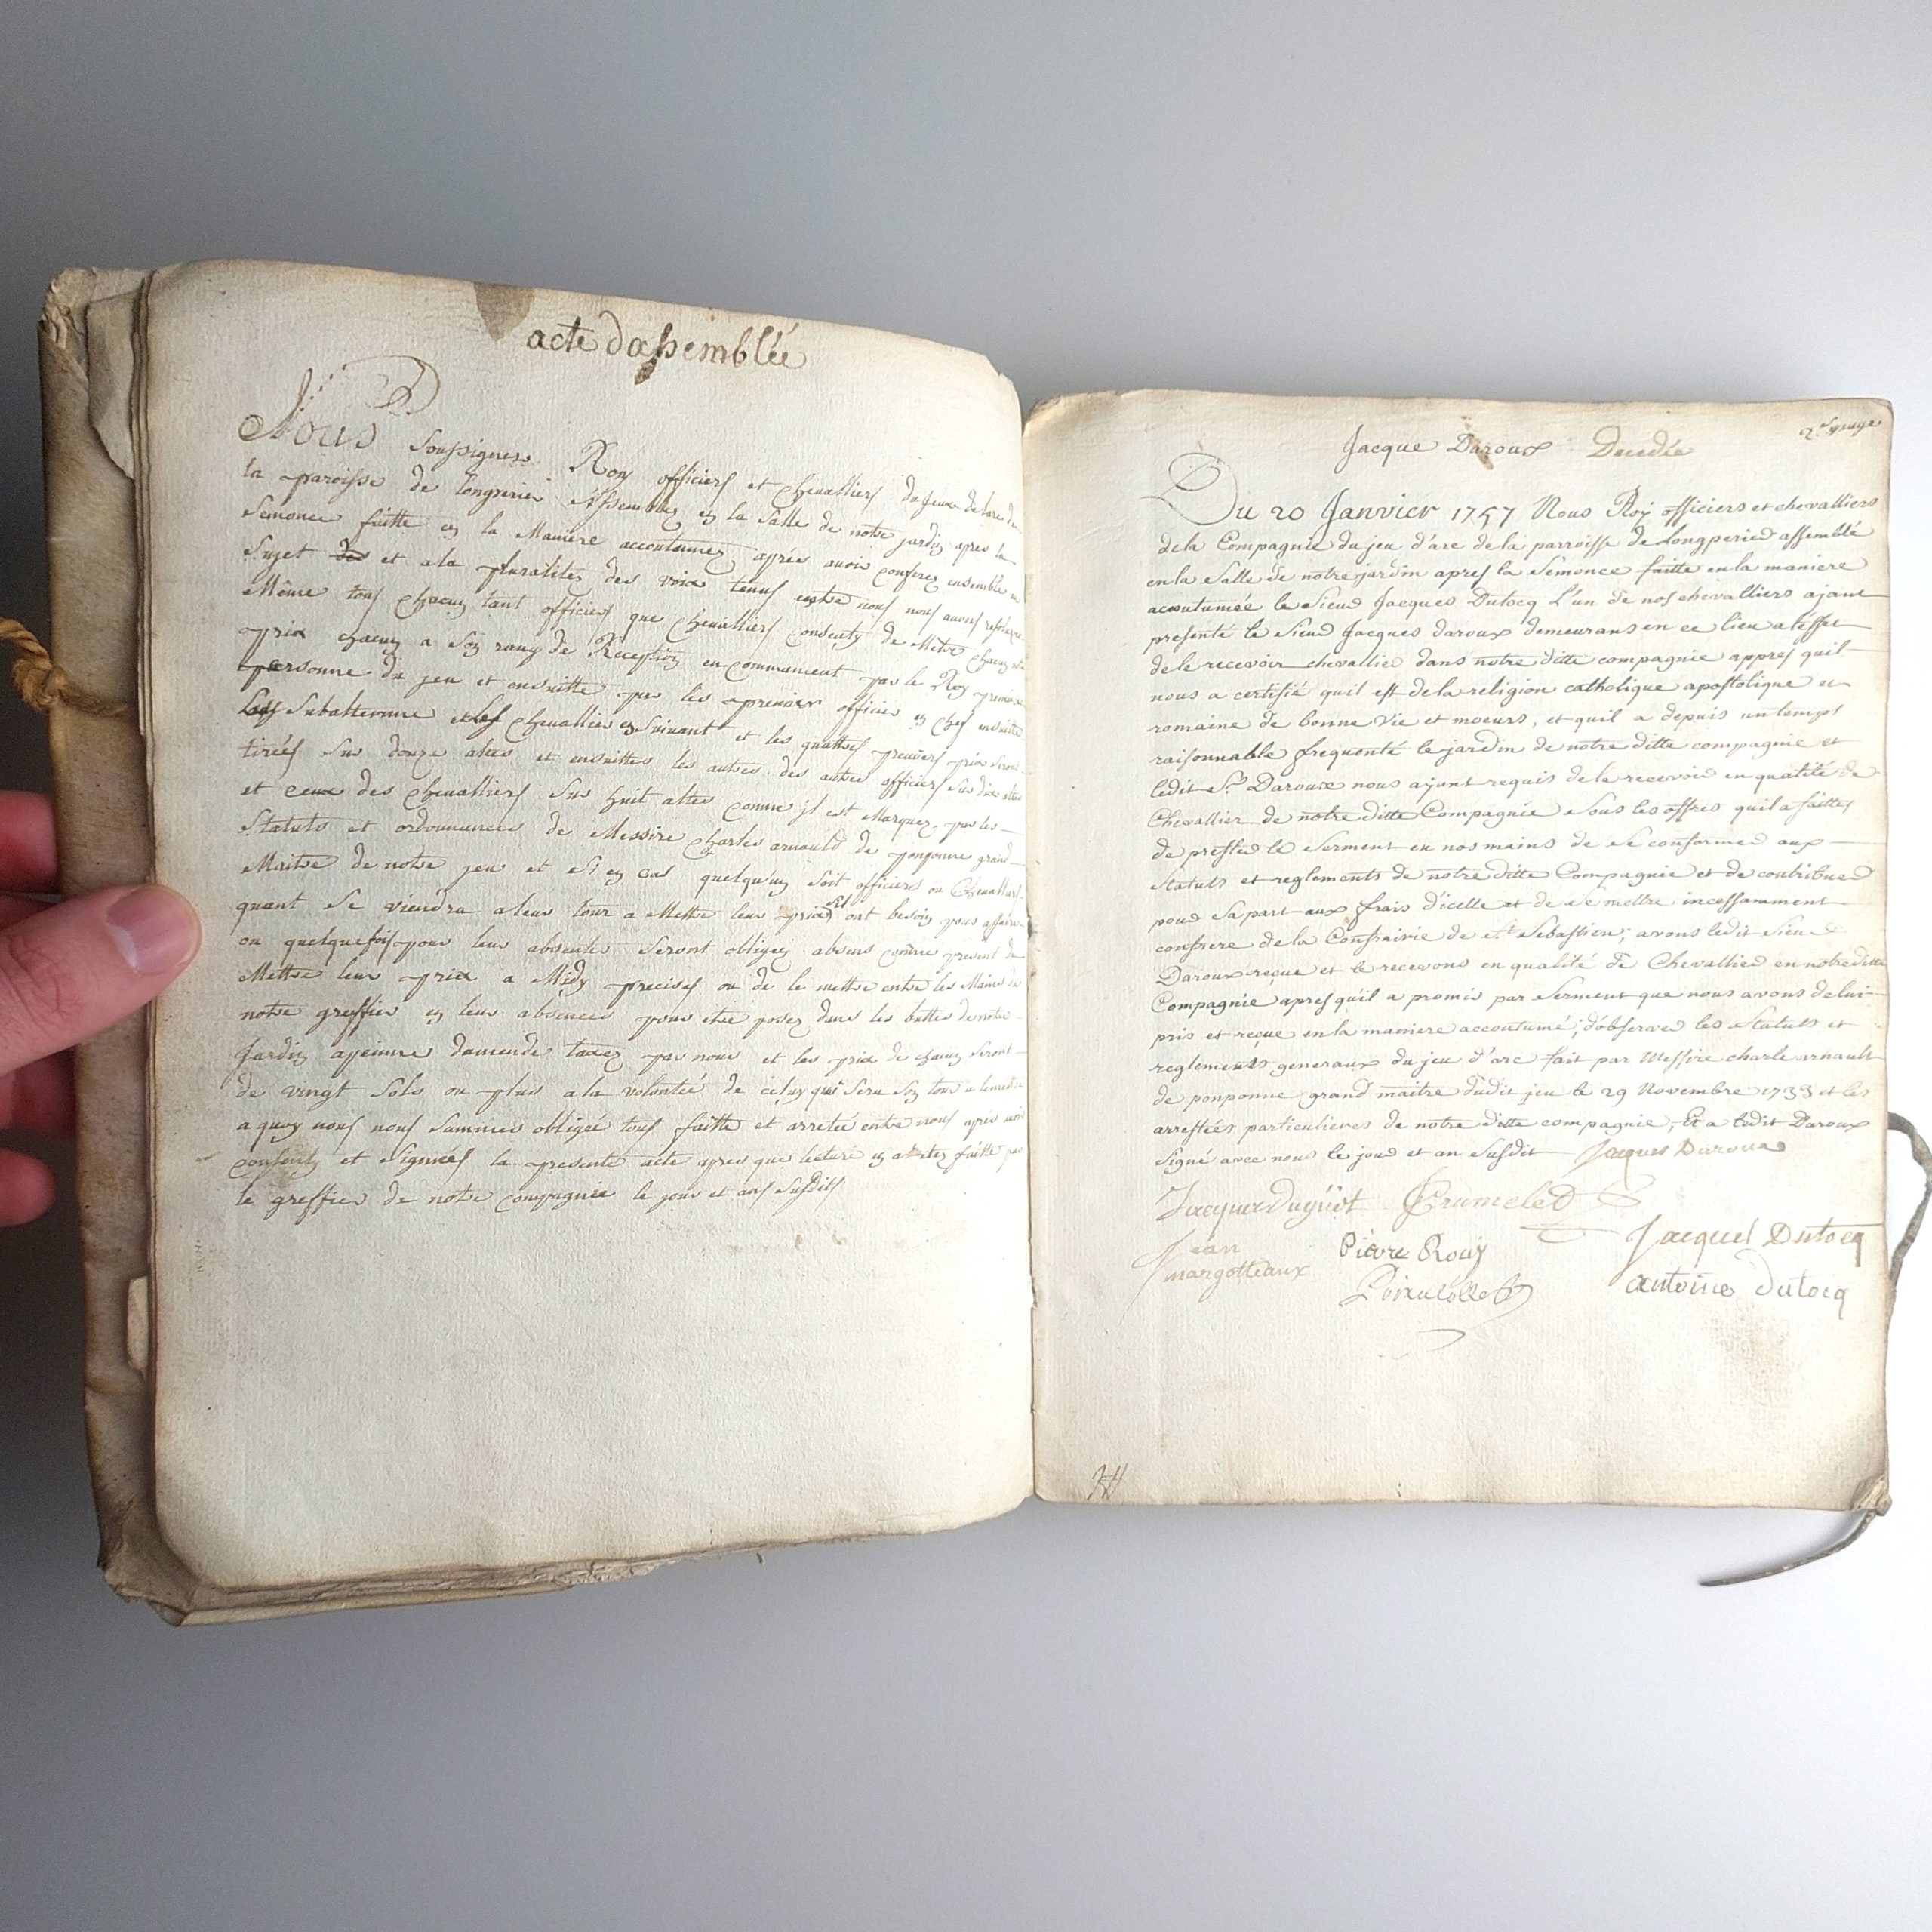 acte dassemblée
Nous soussignes Roy officiers et chevalliers du Jeux de larc de
la paroisse de longperier Assemblez en la Salle de notre jardin apres la
Semonce faitte en la Maniere accoutumez après avoir conferez ensemble
Sujet de et a la pluralitez des voix tenus entre nous nous avons
Même tous chacun tant officiers que chevalliers consenty de Mettre chacun
prix chacun a son rang de Reception en commancent par le Roy
personne du jeu et ensuitte par les premier officier en chef ensuitte
Subalterne et les chevallier en Suivant et les quattres premiers prix Seront
tirées sur douze altes et ensuittes les autres des autres officiers sur dix altes
et ceux des chevalliers sur huit altes comme il est Marquez par les
Statuts et ordonnances de Messire Charles arnauld de pomponne grand
Maitre de notre jeu et si en cas quelqu'un soit officiers ou Chevalliers
quant se viendra a leur tour a Mettre leur prix s'il ont besoin pour affaire
ou quelquefois pour leur absentes seront obligez absens comme present de
Mettre leur prix a Midy precises ou de le mettre entre les Mains de
notre greffier en leur absences pour etre posez dans les buttes de notre
Jardin apeinne damende taxez par nous et les prix de chacun Seront
de vingt sols ou plus a la volontée de celuy qui sera son tour a le mettre
a quoy nous nous sommes obligée tous faitte et arretée entre nous apres
consenty et signées la presente acte apres que lecture en faitte par
le greffier de notre compagnie le jour et ans Susdits
2.e page
Jacque Daroux Decedée
Du 20 Janvier 1757 Nous Roy officiers et chevalliers
de la Compagnie du jeu d'arc de la parroisse de Longperier assemblé
en la Salle de notre jardin apres la Semonce faitte en la maniere
accoutumée le Sieur Jacques Dutocq L'un de nos chevalliers ajant
presenté le Sieur Jacques daroux demeurans en ce lieu a leffet
de le recevoir chevallier dans notre ditte compagnie appres quil
nous a certifié quil est de la religion catholique apostolique et
romaine de bonne vie et moeurs, et quil a depuis un temps
raisonnable frequenté le jardin de notre ditte compagnie et
ledit Sr. Daroux nous ajant requis de le recevoir en qualité de
Chevallier de notre ditte Compagnie sous les offres quil a faittes
de prester le Serment en nos mains de se conformer aux
statuts et reglements de notre ditte Compagnie et de contribuer
pour sa part aux frais d'icelle et de se mettre incessamment
confrere de la Confrairie de st Sebastien; avons ledit Sieur
Daroux reçue et le recevons en qualité de Chevallier en notre ditte
Compagnie apres qu'il a promis par Serment que nous avons de lui
pris et reçue en la maniere accoutumé; d'observer les Statuts et
reglements generaux du jeu d'arc fait par Messire charle arnault
de ponponne grand maitre dudit jeu le 29 Novembre 1733 et les
arrestées particulieres de notre ditte compagnie, Et a ledit Daroux
signé avec nous le jour et an susdit Jacques Daroux
Jacques Duguet Crumelet
Jean margotteaux Pierre Rouy Jacques Dutocq
antoine dutocq